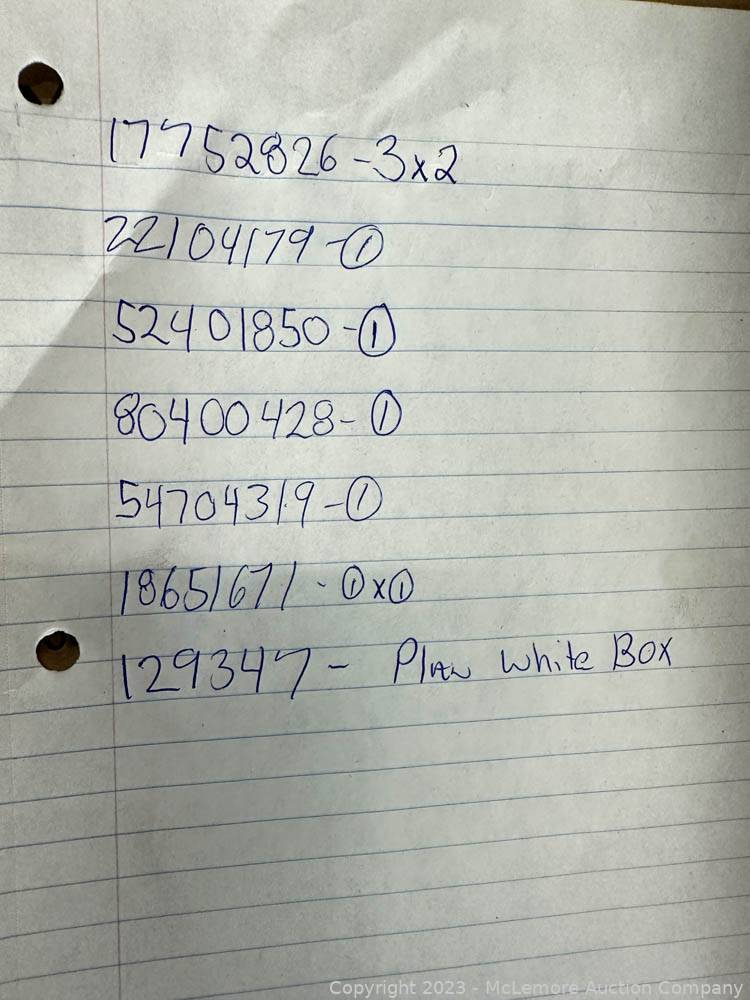 17752826-3x2
22104179-①
52401850-①
80400428-①
54704319-①
18651671-①x①
129347- Plan White Box
Copyright 2023 - McLemore Auction Company